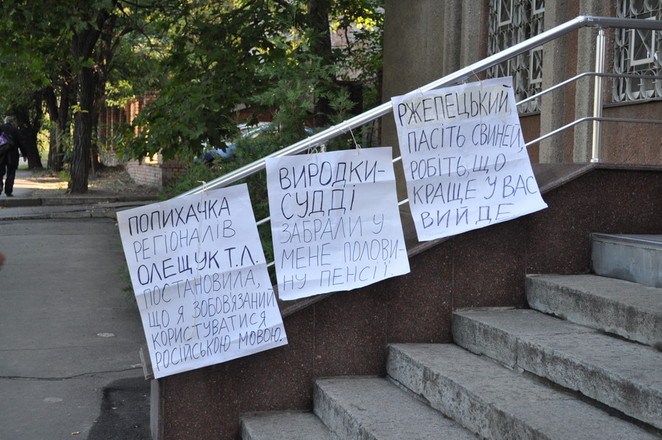 ПОПИХАЧКА
РЕГІОНАЛІВ
ОЛЕЩУК Т.Л.
ПОСТАНОВИЛА,
ЩО Я ЗОБОВ'ЯЗАНИЙ
КОРИСТУВАТИСЯ
РОСІЙСЬКОЮ МОВОЮ.
ВИРОДКИ-
СУДДІ
ЗАБРАЛИ У
МЕНЕ ПОЛОВИ-
НУ ПЕНСІЇ.
РЖЕПЕЦЬКИЙ
ПАСІТЬ СВИНЕЙ,
РОБІТЬ, ЩО
КРАЩЕ У ВАС
ВИЙДЕ